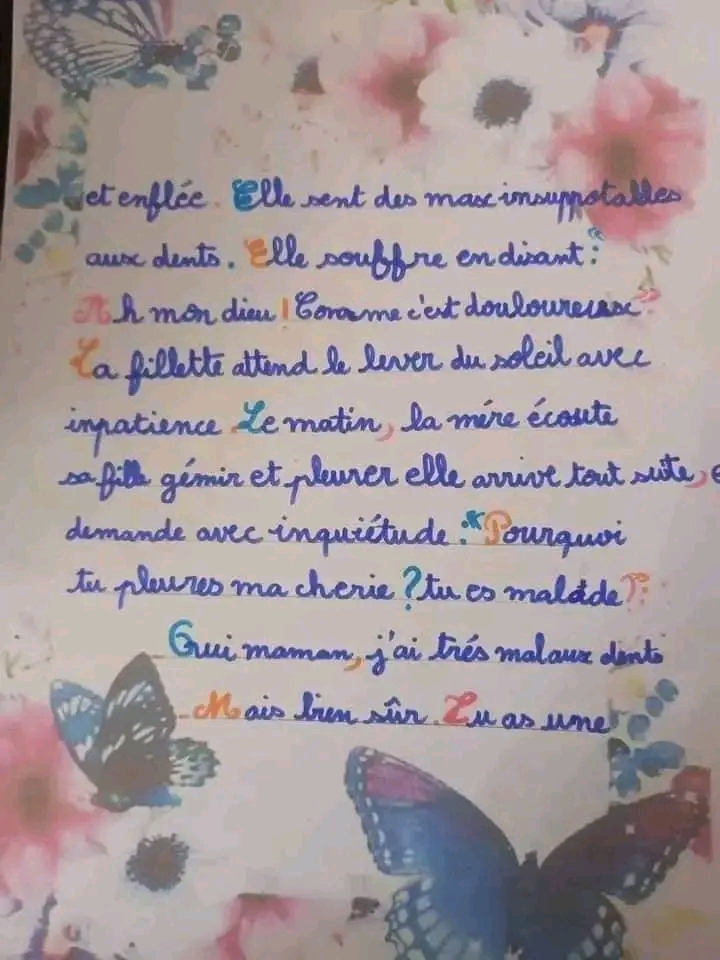 et enflée. Elle sent des max insuppotables
aux dents. Elle souffre en disant : "
Ah mon dieu ! Comme c'est douloureux "
La fillette attend le lever du soleil avec
inpatience. Le matin, la mére écoute
sa fille gémir et pleurer elle arrive tout suite, e
demande avec inquiétude : " Pourquoi
tu pleures ma cherie ? tu es malade ? "
Oui maman, j'ai trés mal aux dents
- Mais bien sûr. Tu as une